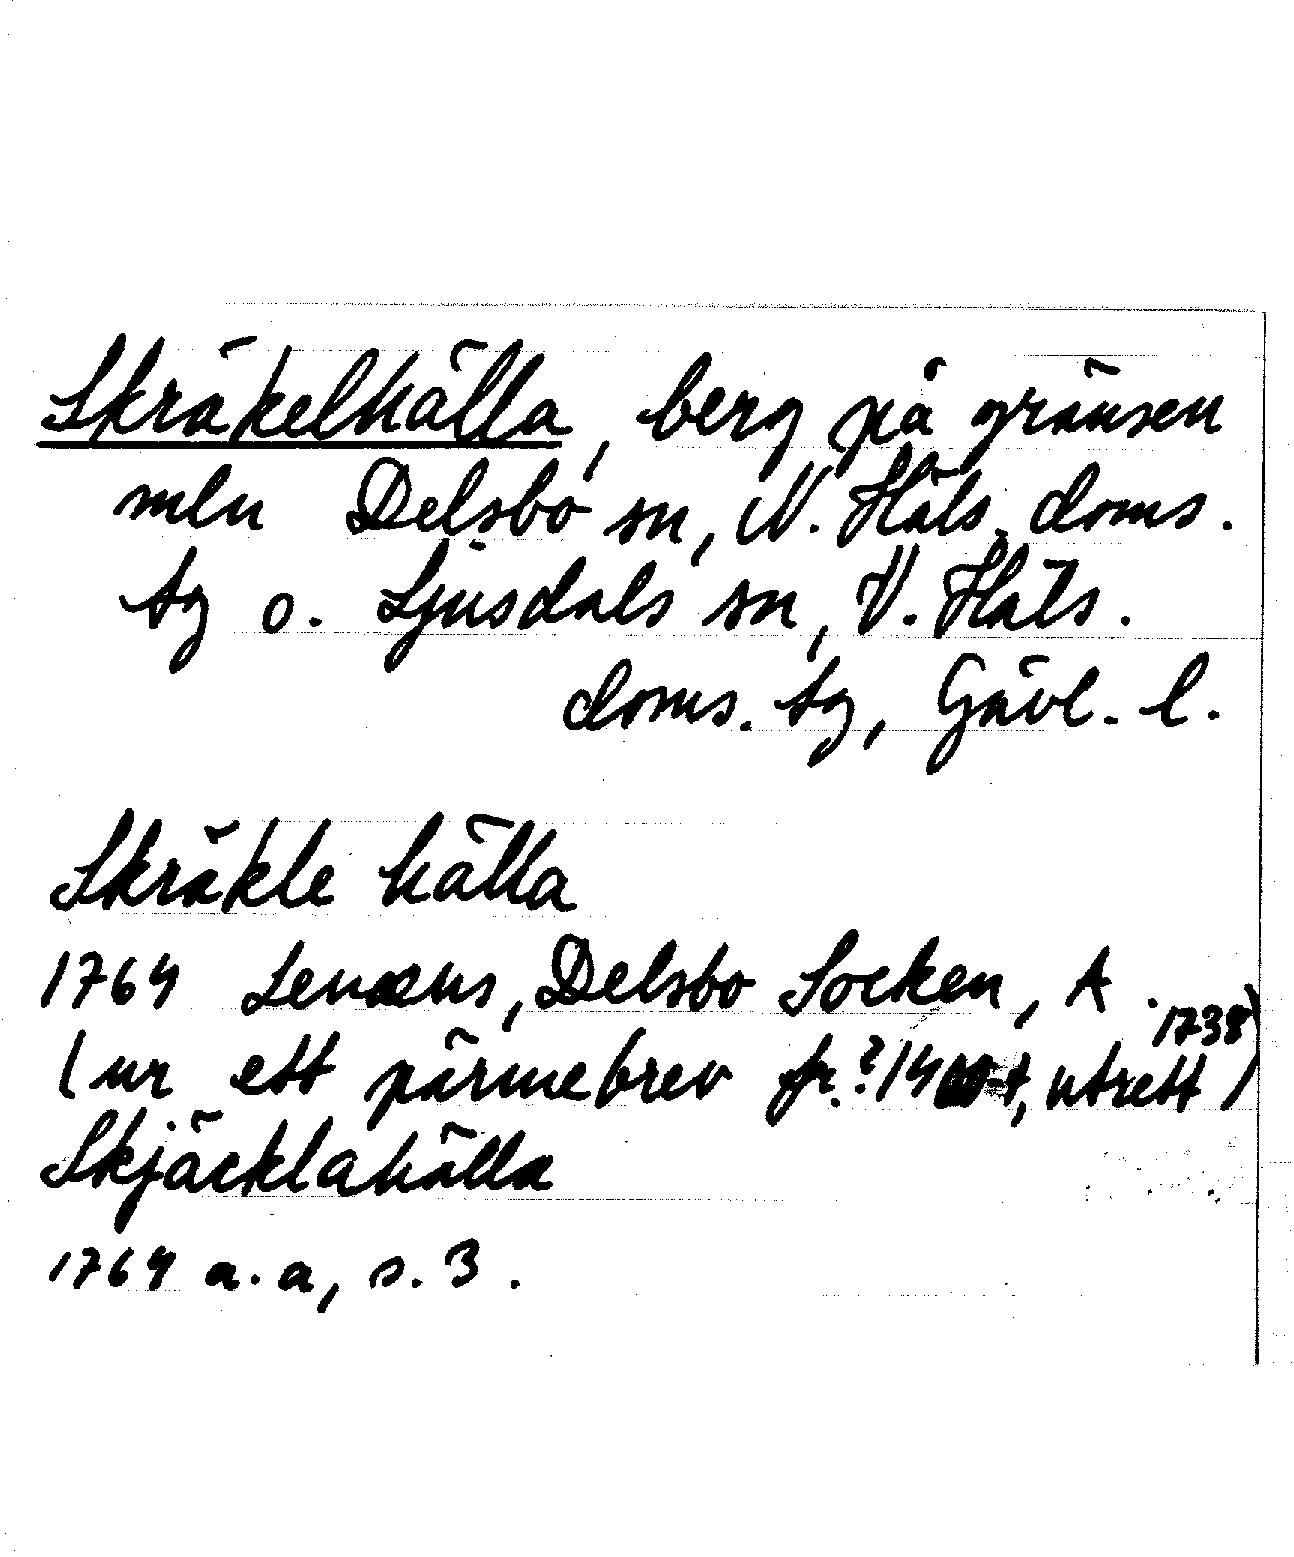 Skräkelhälla, berg på gränsen
mln Delsbo sn, N. Häls. doms.
sg o. Ljusdals sn, V. Häls.
doms. sg, Gävl. l.
Skräkle hälla
1764 Lenæus, Delsbo Socken, A.
(ur ett pärmebrev fr. ? 14 -t, utrett 1738)
Skjäcklahälla
1764 a.a, s. 3.